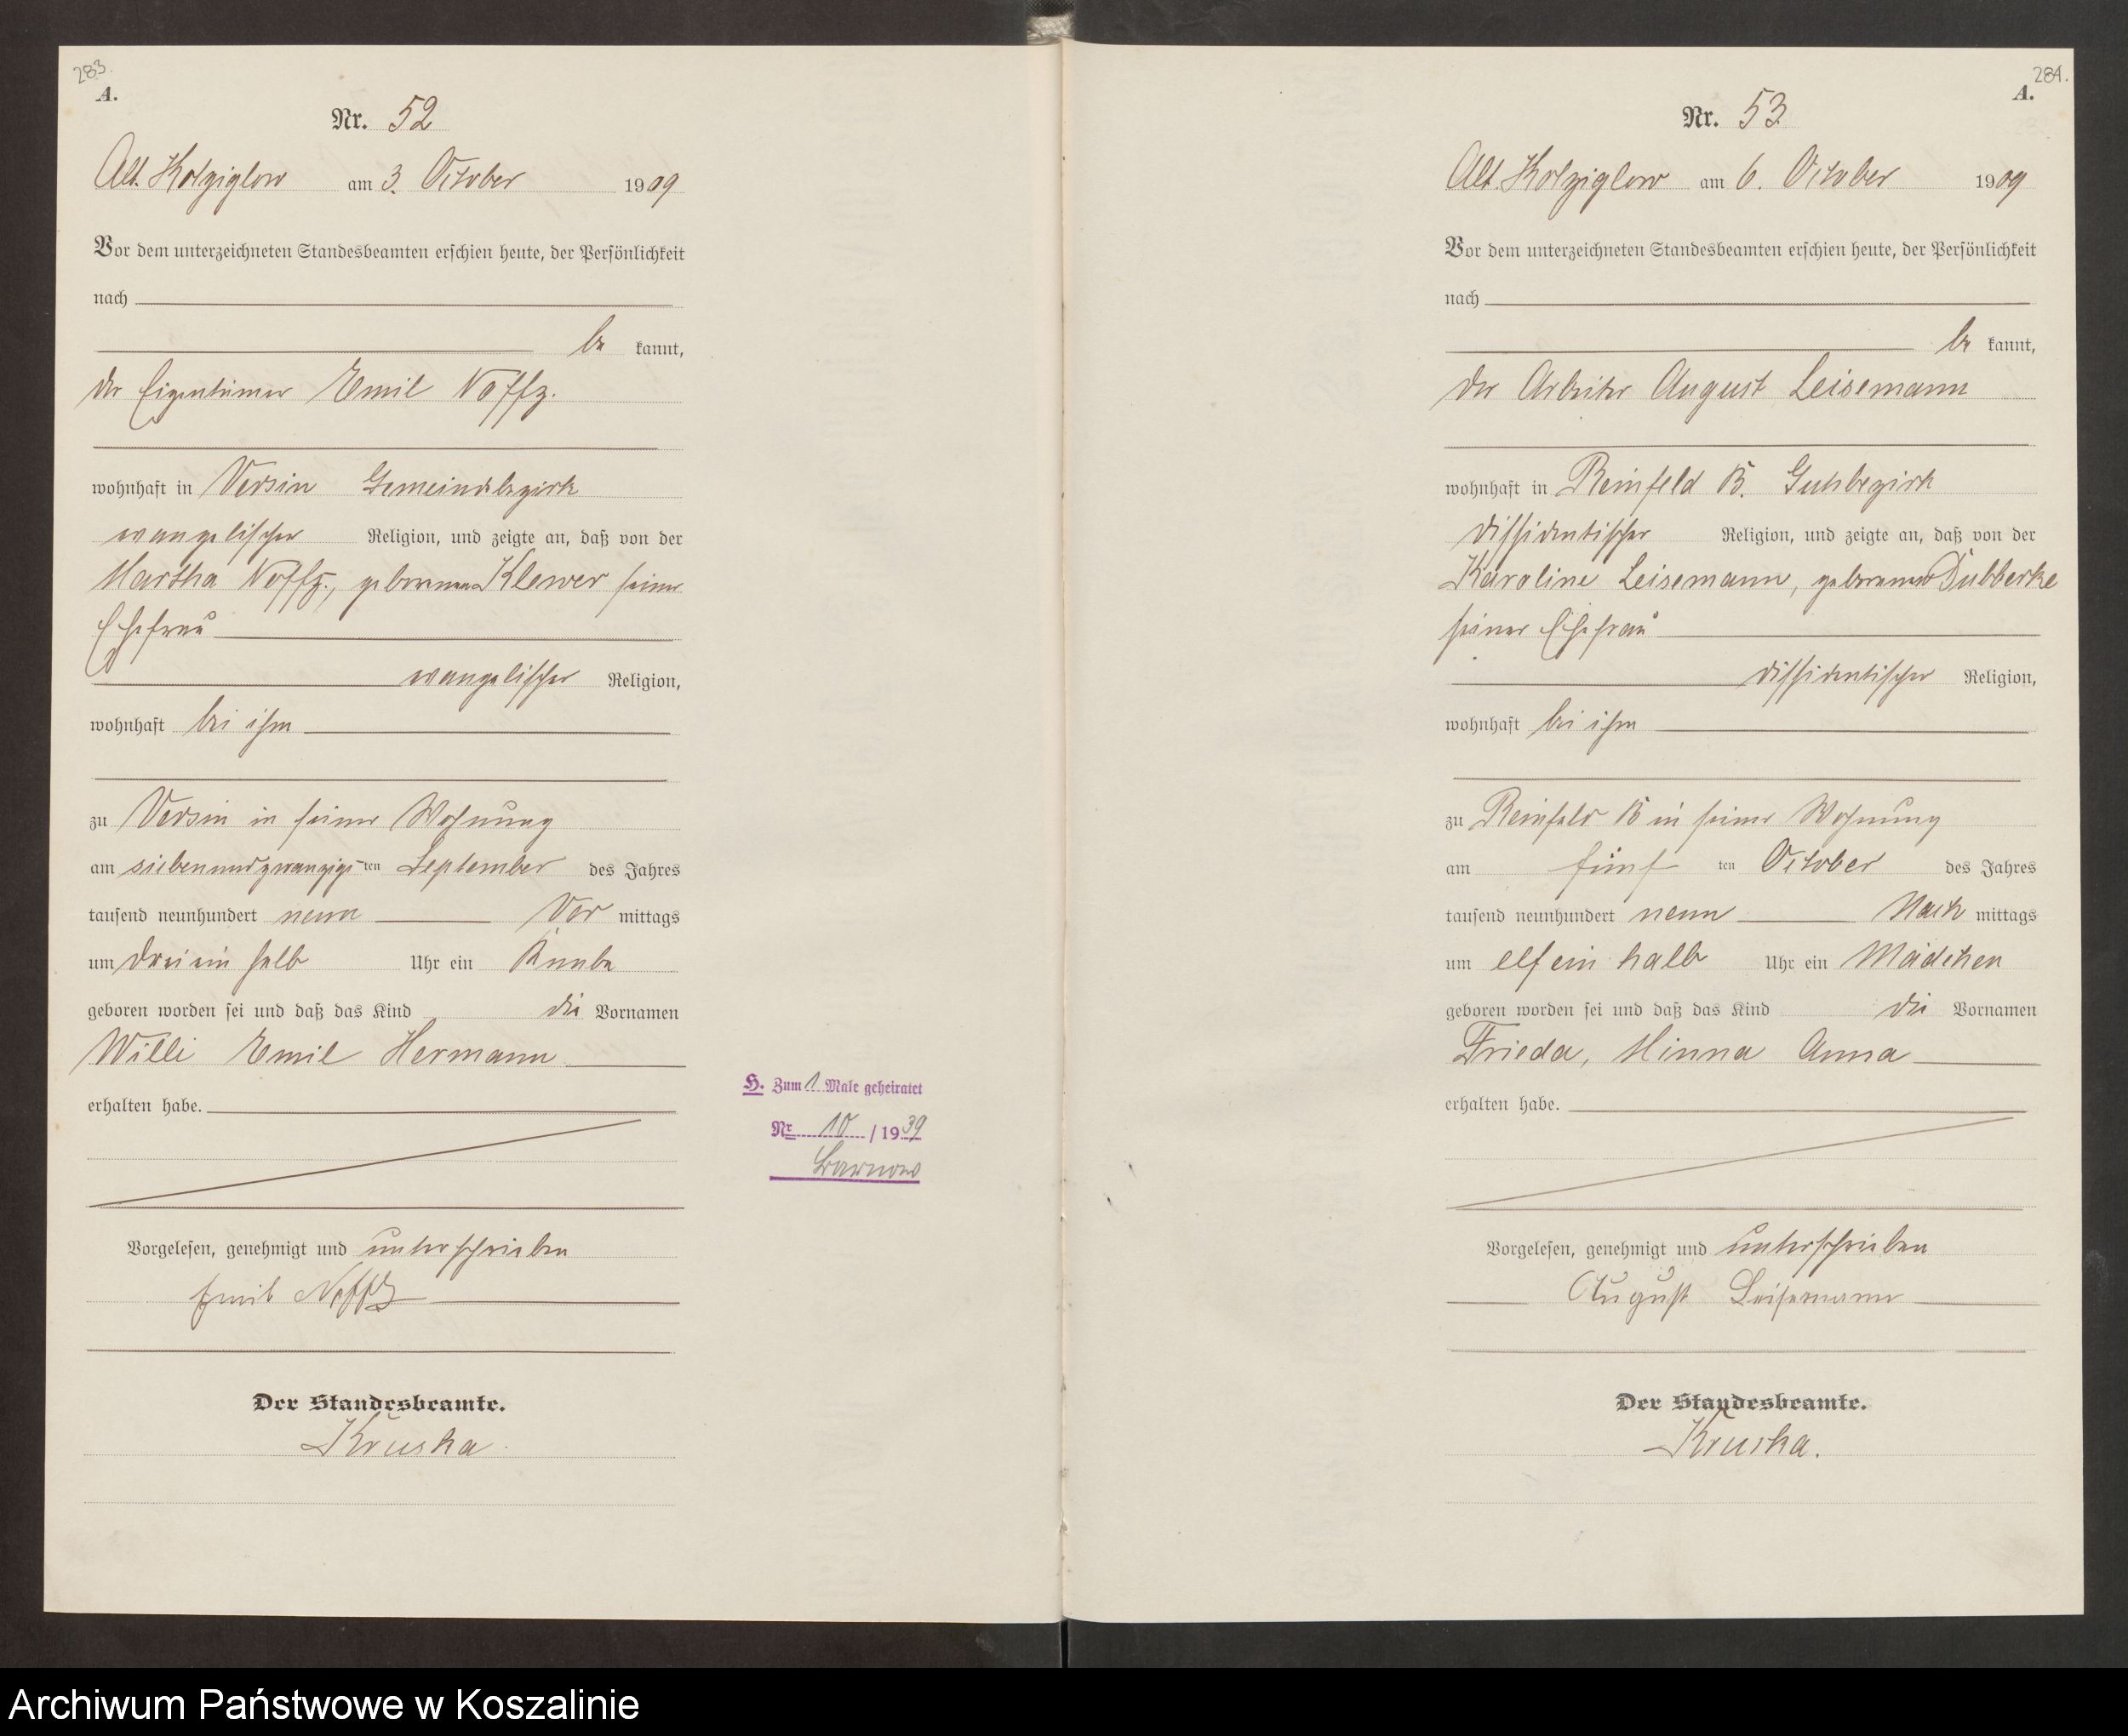 283.
A.
Nr. 52
Alt. Kolziglow am 3. October 1909
Vor dem unterzeichneten Standesbeamten erschien heute, der Persönlichkeit
nach
be kannt,
der Eigentümer Emil Noffz.
wohnhaft in Versin Gemeindebezirk
evangelischer Religion, und zeigte an, daß von der
Martha Noffz., geborenen Klewer seiner
Ehefrau
evangelischer Religion,
wohnhaft bei ihm
zu Versin in seiner Wohnung
am siebenundzwanzigsten September des Jahres
tausend neunhundert neun Vor mittags
um drei ein halb Uhr ein Knabe
geboren worden sei und daß das Kind die Vornamen
Willi Emil Hermann
erhalten habe.
Vorgelesen, genehmigt und unterschrieben
Emil Noffz
Der Standesbeamte.
Kruska.
H. Zum 1 Male geheiratet
Nr. 10 / 1939
Barnow
284.
A.
Nr. 53
Alt. Kolziglow am 6. October 1909
Vor dem unterzeichneten Standesbeamten erschien heute, der Persönlichkeit
nach
be kannt,
der Arbeiter August Leisemann
wohnhaft in Reinfeld B. Gutsbezirk
dissidentischer Religion, und zeigte an, daß von der
Karoline Leisemann, geborenen Dubberke
seiner Ehefrau
dissidentischer Religion,
wohnhaft bei ihm
zu Reinfeld B in seiner Wohnung
am fünf ten October des Jahres
tausend neunhundert neun Nach mittags
um elf ein halb Uhr ein Mädchen
geboren worden sei und daß das Kind die Vornamen
Frieda, Minna Anna
erhalten habe.
Vorgelesen, genehmigt und unterschrieben
August Leisemann
Der Standesbeamte.
Kruska.
Archiwum Państwowe w Koszalinie